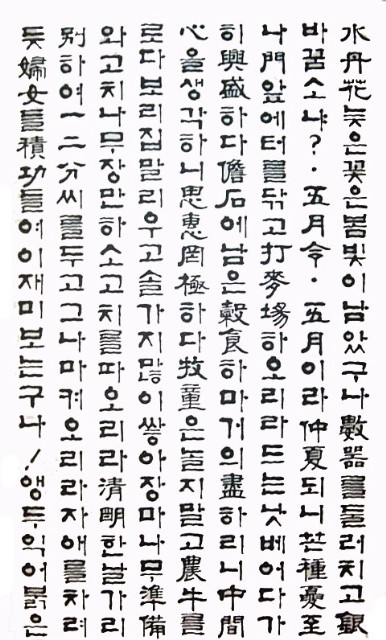 水丹花늦은꽃은봄빛이남았구나數器를둘러치고銀
바꿈소냐?·五月令·五月이라仲夏되니芒種夏至
나門앞에터를닦고打麥場하오리라드는낫베어다가
히興盛하다儋石에남은穀食하마거의盡하리니中間
心을생각하니思惠罔極하다牧童은놀지말고農牛를
로다보리집말리우고솔가지많이쌓아장마나무準備
와고치나무장만하소고치를따오리라清明한날가리
別하여一二分씨를두고그나마켜오리라자애를차려
듯婦女들積功들여이재미보는구나!앵두익어붉은